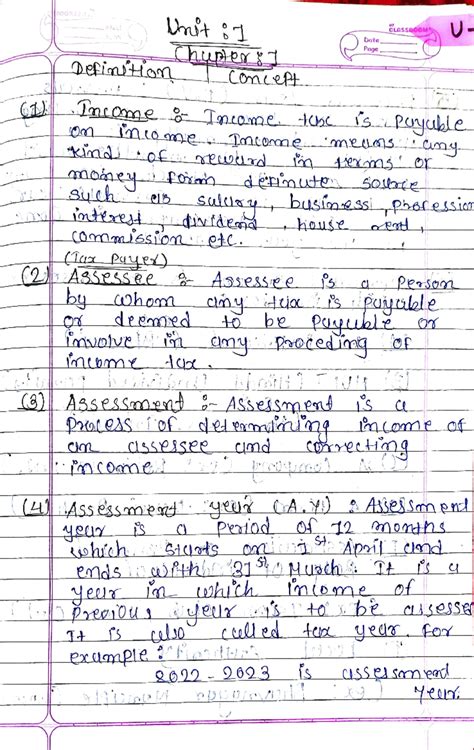 Unit : 1
CLASSROOM
Date
Page
U-
Chapter : 1
Definition Concept
(1) Income :- Income tax is payable
on income. Income means any
kind of reward in terms of
money form definute source
such as salary, business, profession
interest, dividend, house rent,
commission etc.
(Tax payer)
(2) Assessee :- Assessee is a person
by whom any tax is payable
or deemed to be payable or
involve in any proceding of
income tax.
(3) Assessment :- Assessment is a
process of determining income of
an assessee and correcting
income
(4) Assessment year (A.Y) : Assessmend
year is a period of 12 months
which starts on 1st April and
ends with 31st March. It is a
year in which income of
previous year is to be assesse
It is also called tax year. for
example :
2022-2023 is assessmend
year.